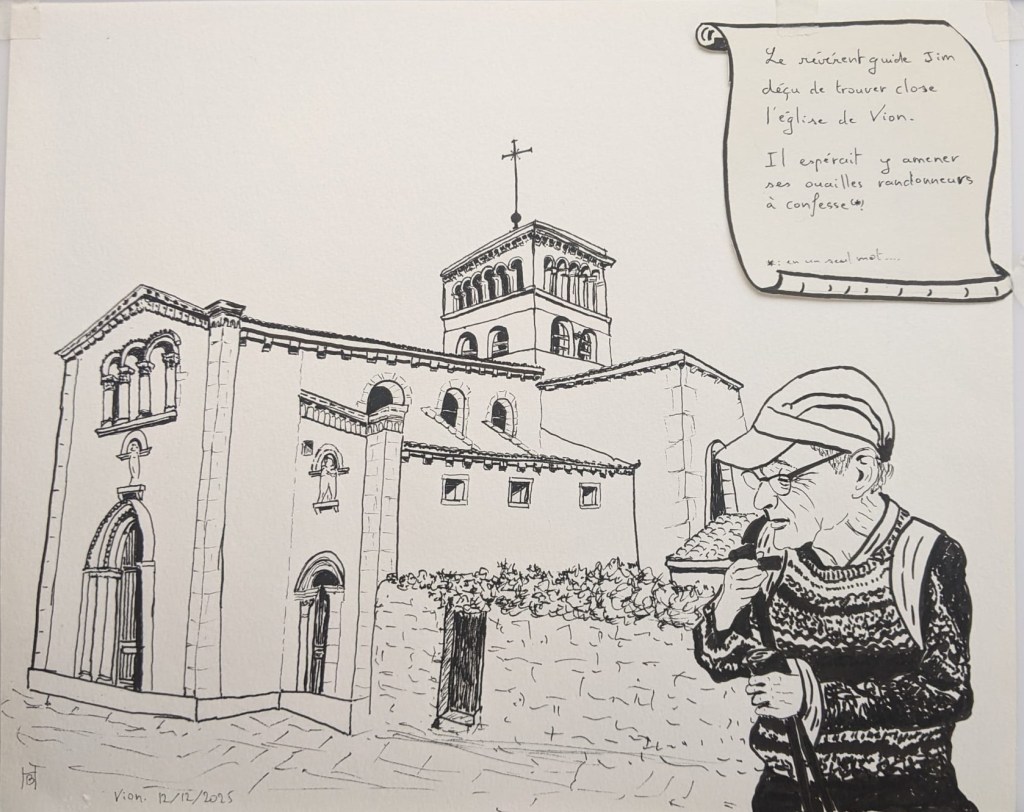 Le révérent guide Jim
déçu de trouver close
l'église de Vion.
Il espérait y amener
ses ouailles randonneurs
à confesse(*)!
*: en un seul mot....
Vion. 12/12/2025